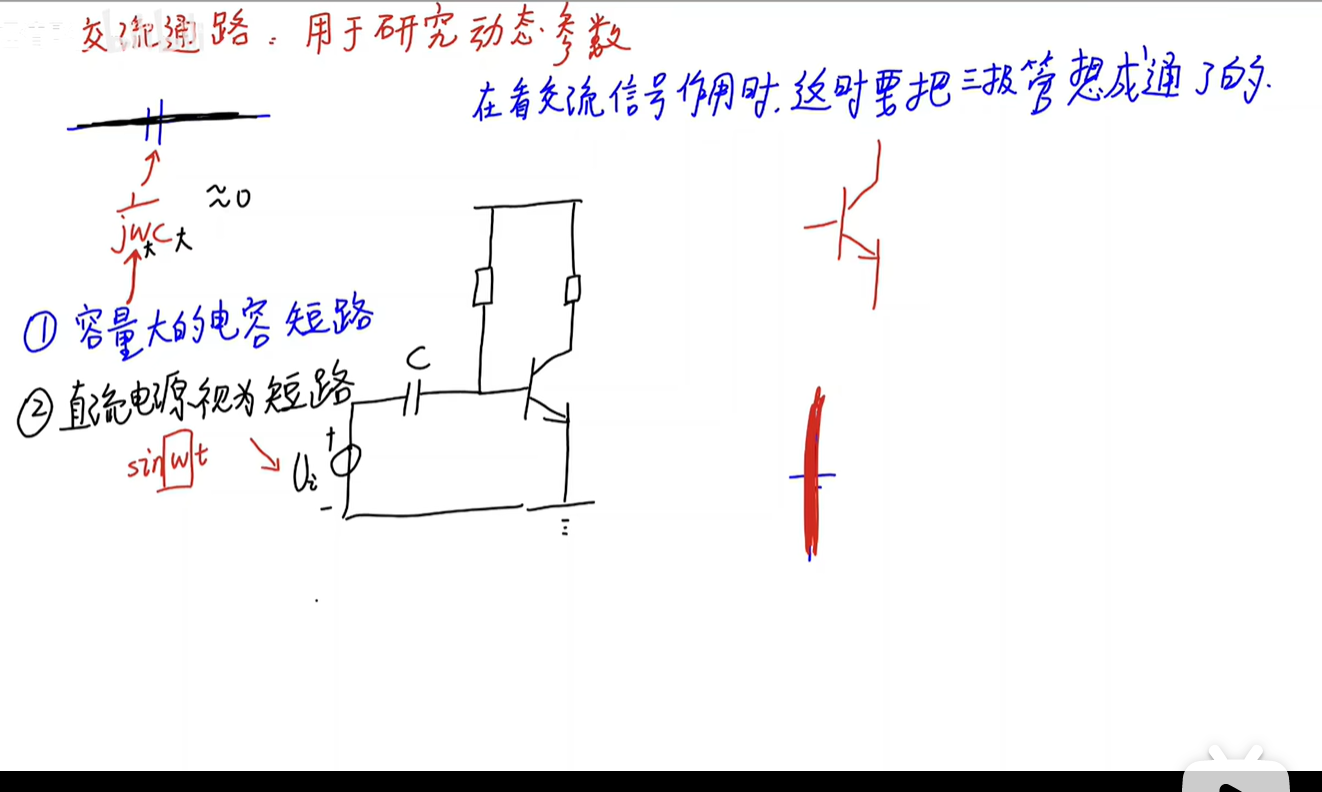 交流通路：用于研究动态参数
在看交流信号作用时,这时要把三极管想成通了的.
1
jwc
大 大
≈0
①容量大的电容短路
C
②直流电源视为短路
+
sinwt
Ui
-